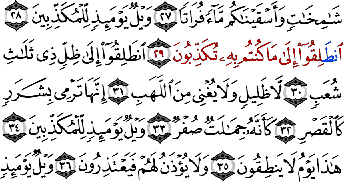 شَـٰمِخَـٰتٍ وَأَسْقَيْنَـٰكُم مَّآءً فُرَاتًا ﴿٢٧﴾ وَيْلٌ يَوْمَئِذٍ لِّلْمُكَذِّبِينَ ﴿٢٨﴾
ٱنطَلِقُوٓا۟ إِلَىٰ مَا كُنتُم بِهِۦ تُكَذِّبُونَ ﴿٢٩﴾ ٱنطَلِقُوٓا۟ إِلَىٰ ظِلٍّ ذِى ثَلَـٰثِ
شُعَبٍ ﴿٣٠﴾ لَّا ظَلِيلٍ وَلَا يُغْنِى مِنَ ٱللَّهَبِ ﴿٣١﴾ إِنَّهَا تَرْمِى بِشَرَرٍ
كَٱلْقَصْرِ ﴿٣٢﴾ كَأَنَّهُۥ جِمَـٰلَتٌ صُفْرٌ ﴿٣٣﴾ وَيْلٌ يَوْمَئِذٍ لِّلْمُكَذِّبِينَ ﴿٣٤﴾
هَـٰذَا يَوْمُ لَا يَنطِقُونَ ﴿٣٥﴾ وَلَا يُؤْذَنُ لَهُمْ فَيَعْتَذِرُونَ ﴿٣٦﴾ وَيْلٌ يَوْمَئِذٍ